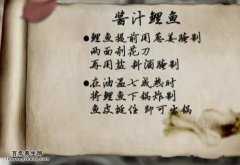 酱汁鲤鱼
●鲤鱼提前用葱姜腌制
两面剞花刀
再用盐 料酒腌制
●在油温七成热时
将鲤鱼下锅炸制
鱼皮挺住即可出锅